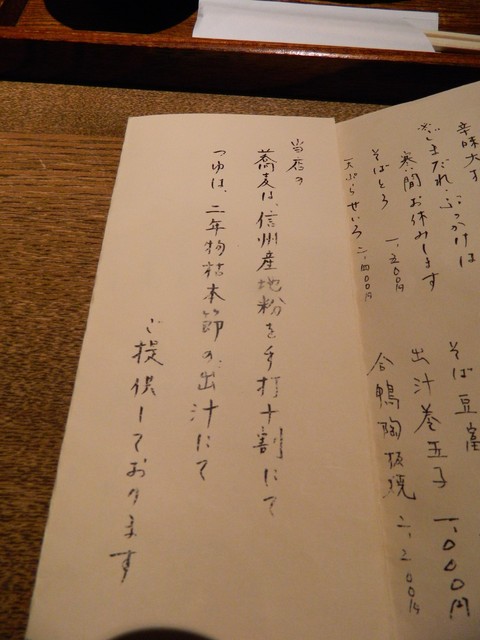 辛味大
ごまだれ ぶっかけは
寒い間お休みします
そばとろ 一、五〇〇円
天ぷらせいろ 二、四〇〇円
そば豆富
出汁巻玉子 一、〇〇〇円
合鴨陶板焼 二、二〇〇円
当店の
蕎麦は、信州産地粉を手打十割にて
つゆは、二年物枯本節の出汁にて
ご提供しております